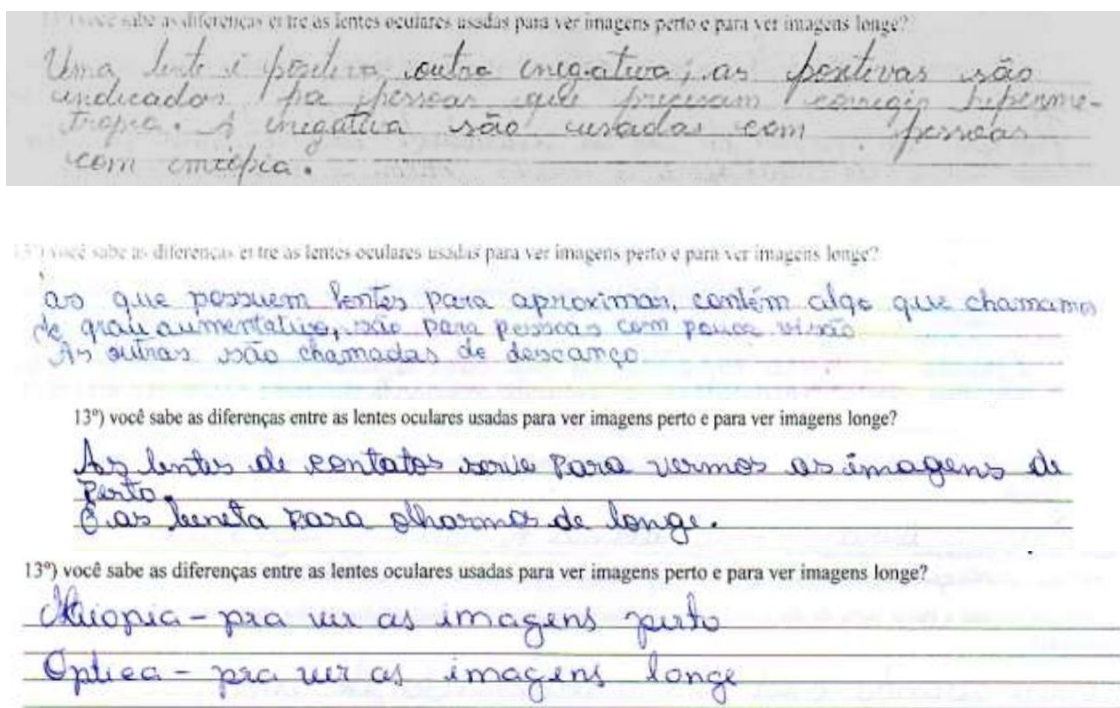 13º) você sabe as diferenças entre as lentes oculares usadas para ver imagens perto e para ver imagens longe?
Uma lente é positiva, outra negativa; as positivas são
indicados pa pessoas que precisam corregir hiperme-
tropia. A negativa são usadas com pessoas
com miópia.
13º) você sabe as diferenças entre as lentes oculares usadas para ver imagens perto e para ver imagens longe?
as que possuem lentes para aproximar, contém algo que chamamos
de grau aumentativo, são para pessoas com pouca visão
As outras são chamadas de descanço.
13º) você sabe as diferenças entre as lentes oculares usadas para ver imagens perto e para ver imagens longe?
As lentes de contatos serve para vermos as imagens de
Perto.
E as luneta para olharmos de longe.
13º) você sabe as diferenças entre as lentes oculares usadas para ver imagens perto e para ver imagens longe?
Miopia - pra ver as imagens perto
Optica - pra ver as imagens longe